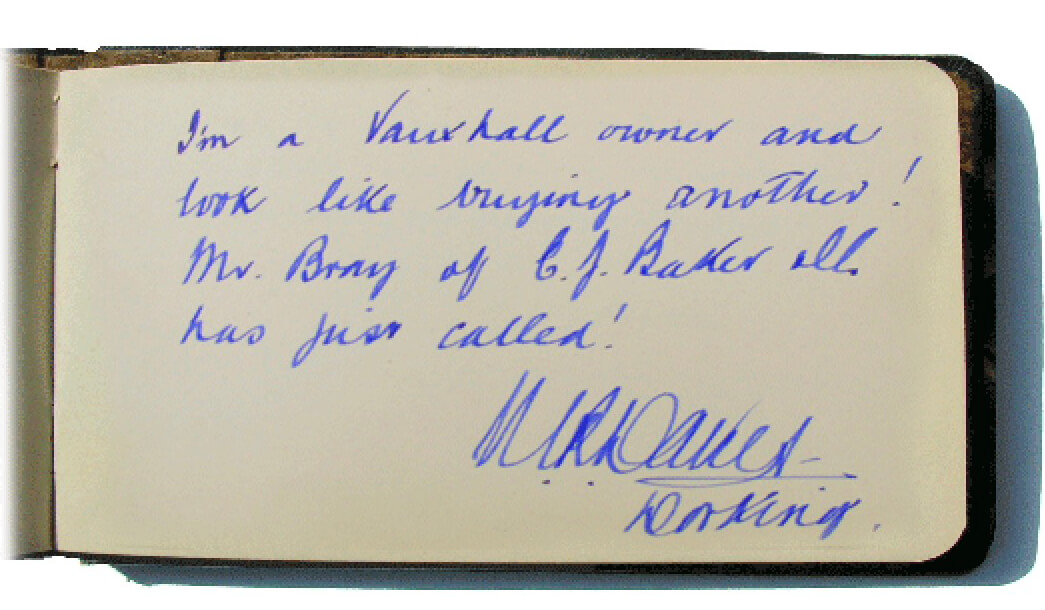 I'm a Vauxhall owner and
look like buying another!
Mr. Bray of C.J. Baker
has just called!
Dorking.